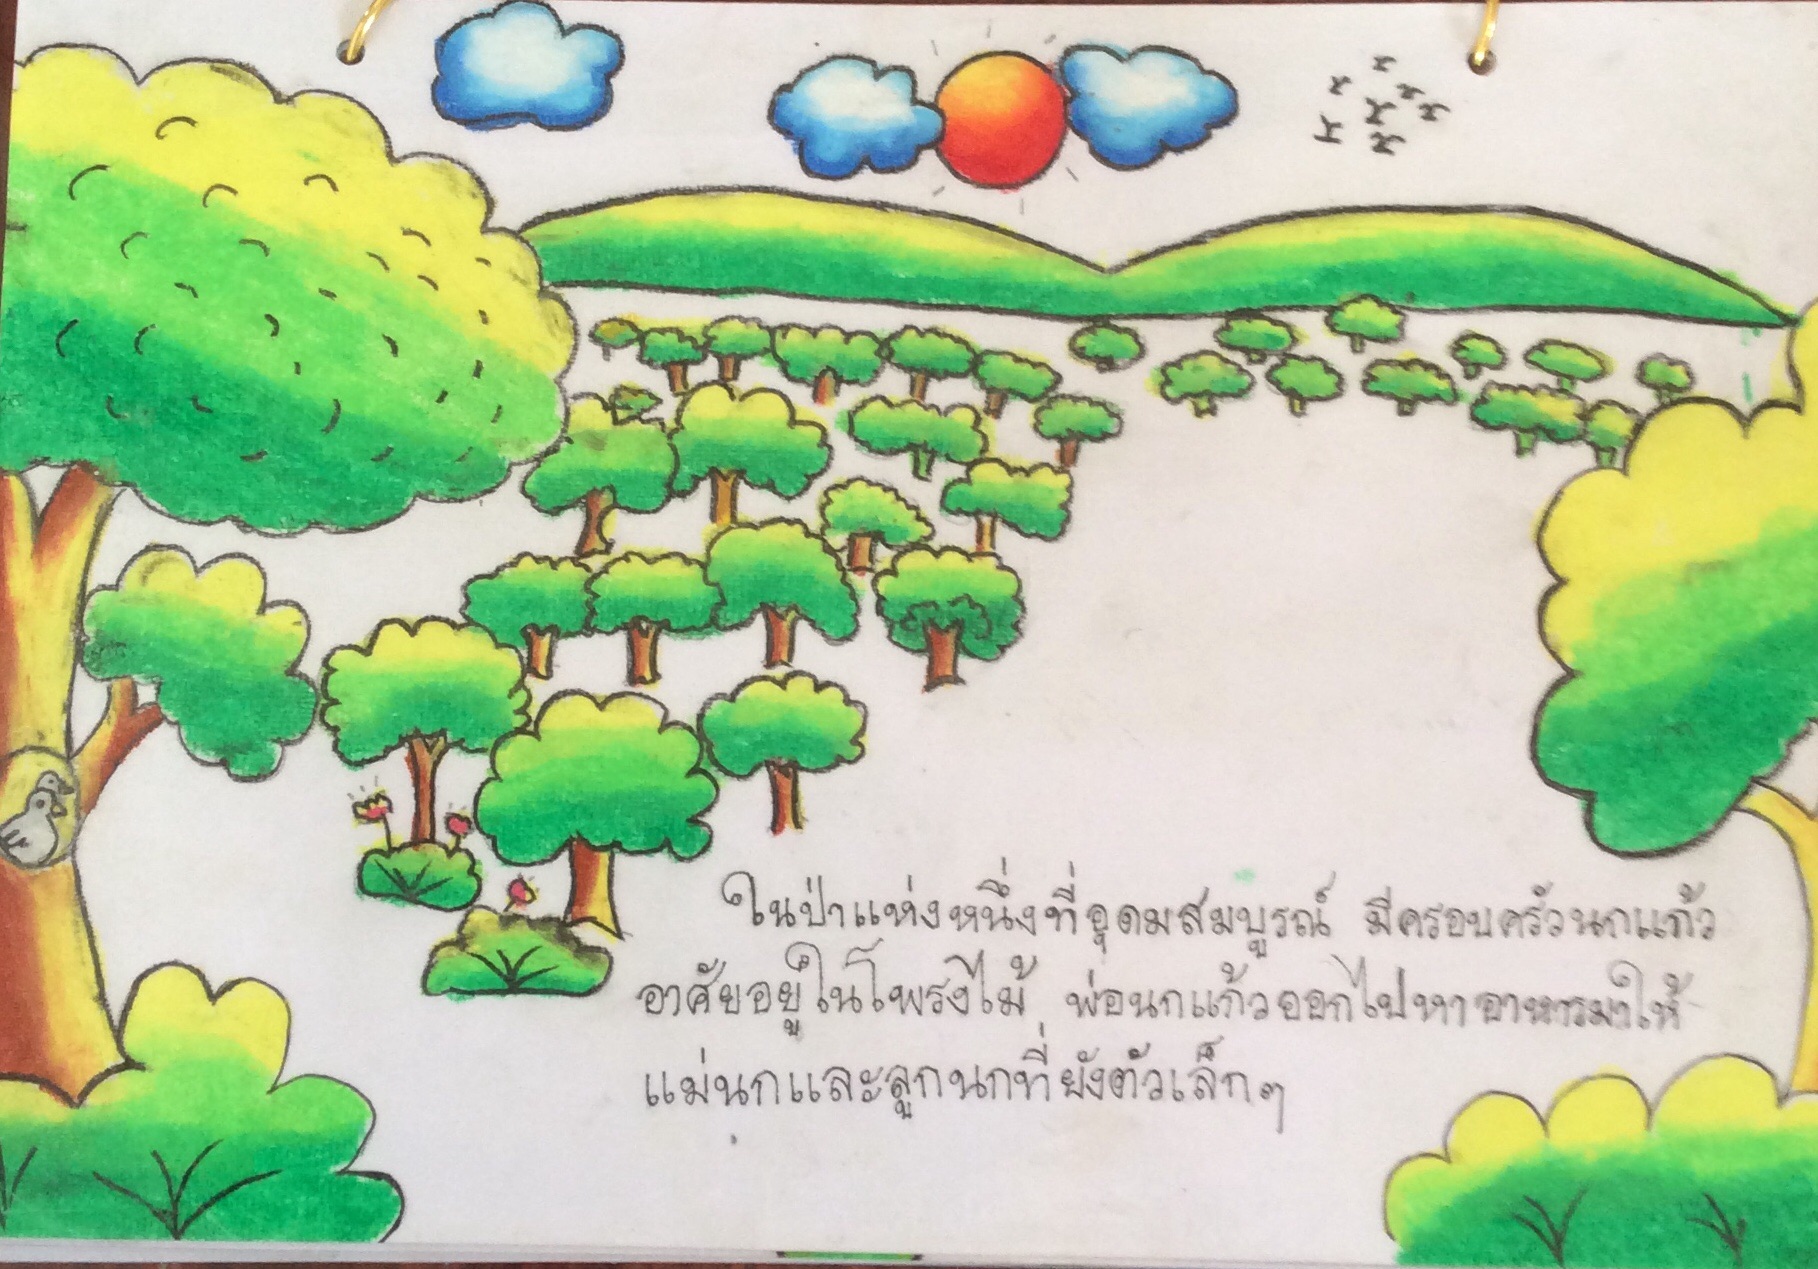 ในป่าแห่งหนึ่งที่อุดมสมบูรณ์ มีครอบครัวนกแก้ว
อาศัยอยู่ในโพรงไม้ พ่อนกแก้วออกไปหาอาหารมาให้
แม่นกและลูกนกที่ยังตัวเล็กๆ